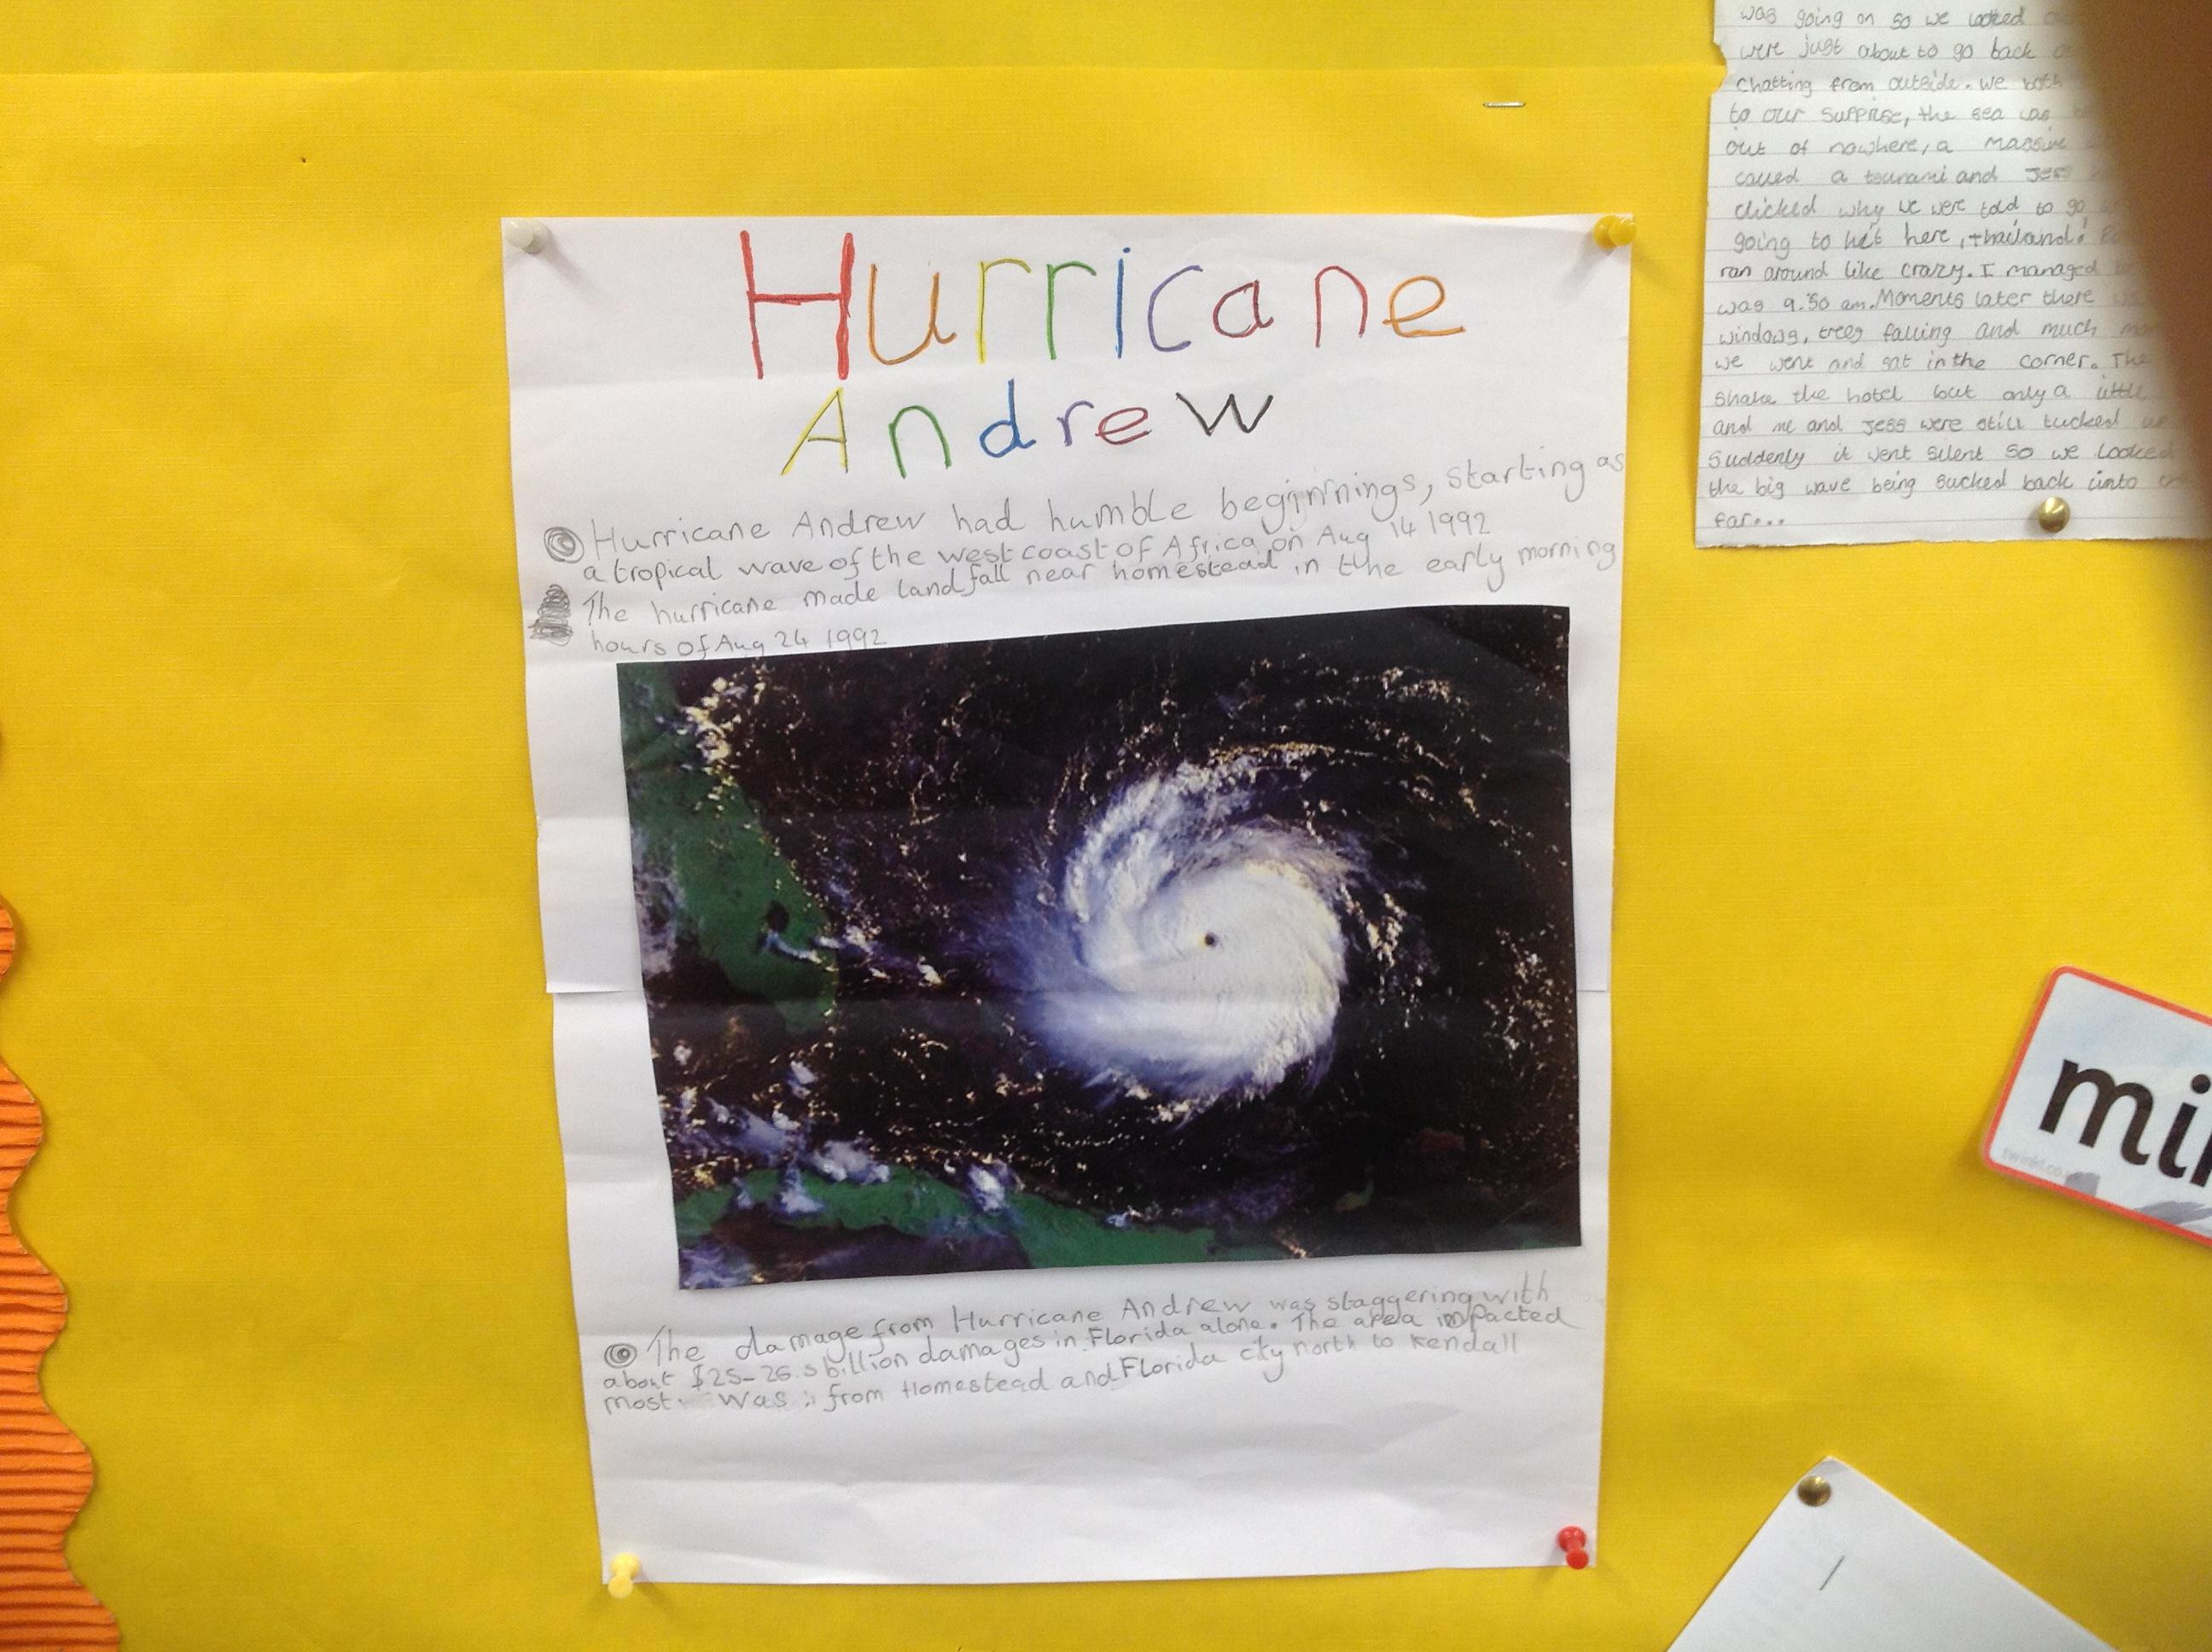 Hurricane
Andrew
Hurricane Andrew had humble beginnings, starting as
a tropical wave of the west coast of Africa on Aug 14 1992
The hurricane made landfall near homestead in the early morning
hours of Aug 24 1992
The damage from Hurricane Andrew was staggering with
about $25-26.5 billion damages in Florida alone. The area impacted
most was from Homestead and Florida city north to Kendall
was going on so we looked
were just about to go back
chatting from outside. we both
to our surprise, the sea was
out of nowhere, a massive
called a tsunami and Jess
clicked why we were told to go
going to hit here, thailand!
ran around like crazy. I managed
was 9:50 am. Moments later there
windows, trees falling and much
we went and sat in the corner. The
shake the hotel but only a little
and me and Jess were still tucked
Suddenly it went silent so we looked
the big wave being sucked back into
far...
mi
twinkl.co